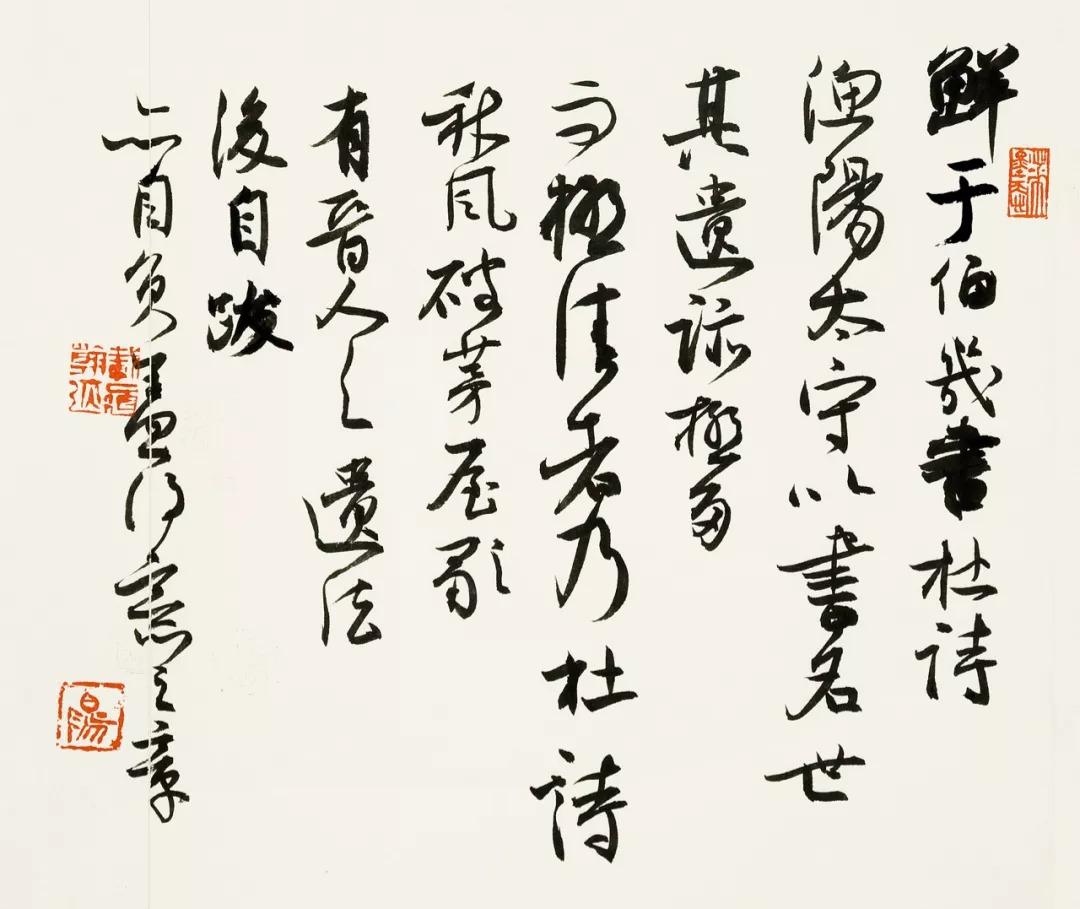 鮮于伯幾書杜詩
漁陽太守以書名世
其遺跡極多
而極佳者乃杜詩
秋風破茅屋歌
有晉人之遺法
後自跋
亦自負得意之章